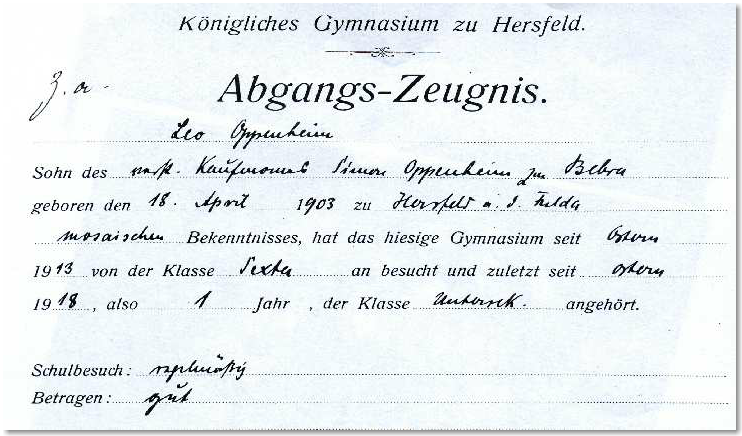 Königliches Gymnasium zu Hersfeld.
Abgangs-Zeugnis.
Z. a.
Leo Oppenheim
Sohn des verst. Kaufmanns Simon Oppenheim zu Bebra
geboren den 18. April 1903 zu Hersfeld a. d. Fulda
mosaischen Bekenntnisses, hat das hiesige Gymnasium seit Ostern
1913 von der Klasse Sexta an besucht und zuletzt seit Ostern
1918, also 1 Jahr, der Klasse Untersek. angehört.
Schulbesuch: regelmäßig
Betragen: gut